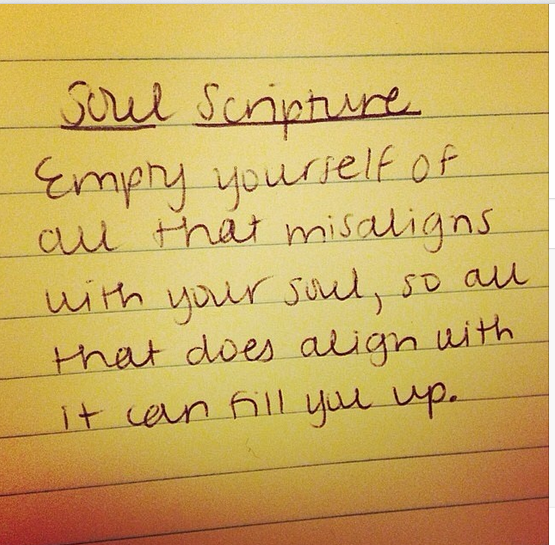 Soul Scripture
Empty yourself of
all that misaligns
with your soul, so all
that does align with
it can fill you up.